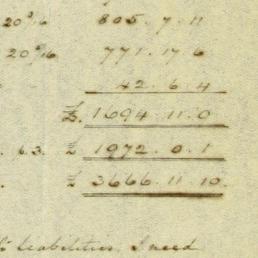 20%16 805.7.11
20%16 771.17.6
42.6.4
£. 1694.11.0
. 63. £ 1972.0.1
£ 3666.11.10.
liabilities I need